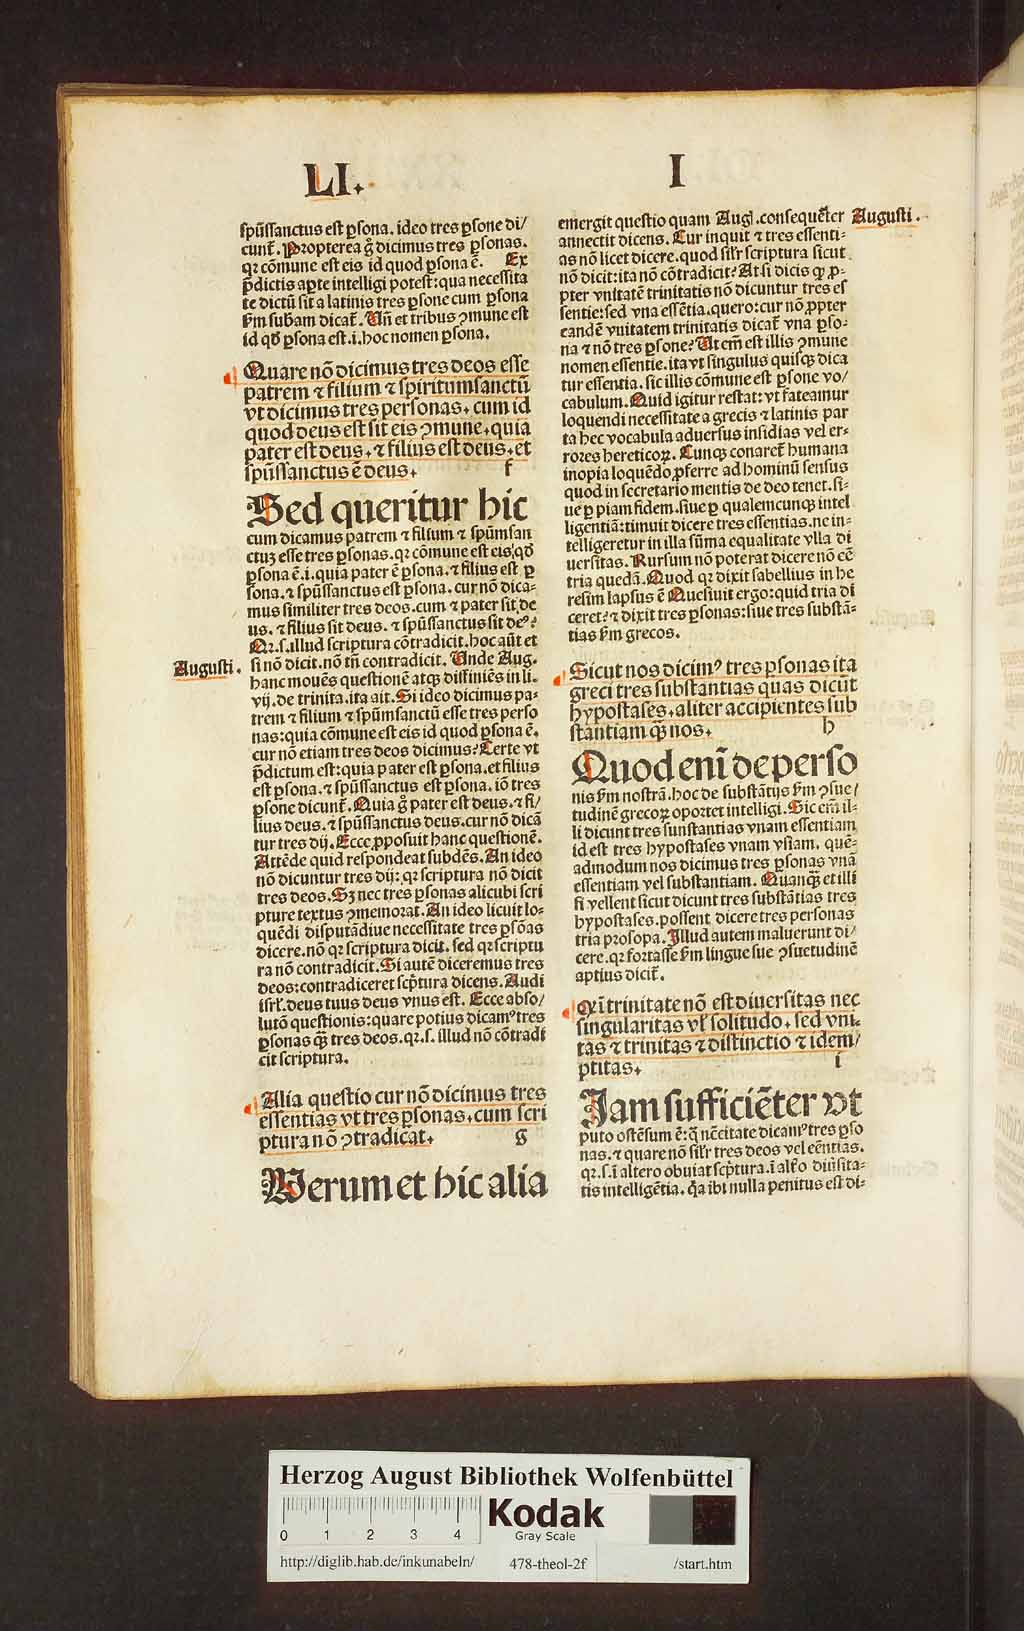 LI.
I
spūssanctus est ꝑsona. ideo tres ꝑsone di/
cunt̄. Propterea gͦ dicimus tres ꝑsonas.
qꝛ cōmune est eis id quod ꝑsona ē. Ex
p̄dictis aꝑte intelligi potest: qua necessita
te dictū sit a latinis tres ꝑsone cum ꝑsona
ẜm subam dicat̄. Un̄ et tribus ꝯmune est
id qd̄ ꝑsona est. i. hoc nomen ꝑsona.
Quare nō dicimus tres deos esse
patrem ⁊ filium ⁊ spiritumsanctū
vt dicimus tres personas. cum id
quod deus est sit eis ꝯmune. quia
pater est deus. ⁊ filius est deus. et
spūssanctus ē deus. f
Sed queritur hic
cum dicamus patrem ⁊ filium ⁊ spūmsan
ctuꝫ esse tres ꝑsonas. qꝛ cōmune est eis, qd̄
ꝑsona ē. i. quia pater ē ꝑsona. ⁊ filius est ꝑ
sona. ⁊ spūssanctus est ꝑsona. cur nō dica-
mus similiter tres deos. cum ⁊ pater sit de
us. ⁊ filius sit deus. ⁊ spūssanctus sit deꝰ?
Qꝛ. s. illud scriptura cōtradicit. hoc aūt et
Augusti.
si nō dicit. nō tn̄ contradicit. Unde Aug.
hanc mouēs questionē atqꝫ diffiniēs in li.
vij. de trinita. ita ait. Si ideo dicimus pa-
trem ⁊ filium ⁊ spūmsanctū esse tres perso
nas: quia cōmune est eis id quod ꝑsona ē.
cur nō etiam tres deos dicimus? Certe vt
p̄dictum est: quia pater est ꝑsona. et filius
est ꝑsona. ⁊ spūssanctus est ꝑsona. iō tres
ꝑsone dicunt̄. Quia gͦ pater est deus. ⁊ fi/
lius deus. ⁊ spūssanctus deus. cur nō dicā
tur tres dij. Ecce ꝓposuit hanc questionē.
Attēde quid respondeat subdēs. An ideo
nō dicuntur tres dij: qꝛ scriptura nō dicit
tres deos. Sꝫ nec tres ꝑsonas alicubi scri
pture textus ꝯmemorat. An ideo licuit lo-
quēdi disputādiue necessitate tres ꝑsōas
dicere. nō qꝛ scriptura dicit. sed qꝛ scriptu
ra nō contradicit. Si autē diceremus tres
deos: contradiceret scp̄tura dicens. Audi
isrl̄. deus tuus deus vnus est. Ecce abso/
lutō questionis: quare potius dicamꝰ tres
ꝑsonas qꝫ tres deos. qꝛ. s. illud nō cōtradi
cit scriptura.
Alia questio cur nō dicimus tres
essentias vt tres ꝑsonas. cum scri
ptura nō ꝯtradicat. g
Verum et hic alia
emergit questio quam Augl̄. consequēter
Augusti.
annectit dicens. Cur inquit ⁊ tres essenti-
as nō licet dicere. quod sil'r scriptura sicut
nō dicit: ita nō cōtradicit? At si dicis qꝙ ꝓ-
pter vnitatē trinitatis nō dicuntur tres es
sentie: sed vna essētia. quero: cur nō ꝓpter
eandē vnitatem trinitatis dicat̄ vna ꝑso-
na ⁊ nō tres ꝑsone? Ut em̄ est illis ꝯmune
nomen essentie. ita vt singulus quisqꝫ dica
tur essentia. sic illis cōmune est ꝑsone vo/
cabulum. Quid igitur restat: vt fateamur
loquendi necessitate a grecis ⁊ latinis par
ta hec vocabula aduersus insidias vel er-
rores hereticoꝝ. Cunqꝫ conaret̄ humana
inopia loquēdo ꝓferre ad hominū sensus
quod in secretario mentis de deo tenet. si-
ue ꝑ piam fidem. siue ꝑ qualemcunqꝫ intel
ligentiā: timuit dicere tres essentias. ne in-
telligeretur in illa sūma equalitate vlla di
uersitas. Rursum nō poterat dicere nō eē
tria quedā. Quod qꝛ dixit sabellius in he
resim lapsus ē Quesiuit ergo: quid tria di
ceret? ⁊ dixit tres ꝑsonas: siue tres substā-
tias ẜm grecos.
Sicut nos dicimꝰ tres ꝑsonas ita
greci tres substantias quas dicūt
hypostases. aliter accipientes sub
stantiam qꝫ nos. h
Quod eni de perso
nis ẜm nostrā. hoc de substātijs ẜm ꝯsue/
tudinē grecoꝝ oportet intelligi. Sic em̄ il-
li dicunt tres sunstantias vnam essentiam
id est tres hypostases vnam vsiam. quē-
admodum nos dicimus tres ꝑsonas vnā
essentiam vel substantiam. Quanqꝫ et illi
si vellent sicut dicunt tres substātias tres
hypostases. possent dicere tres personas
tria prosopa. Illud autem maluerunt di/
cere. qꝛ fortasse ẜm lingue sue ꝯsuetudinē
aptius dicit̄.
Qꝙ i trinitate nō est diuersitas nec
singularitas vl' solitudo. sed vni-
tas ⁊ trinitas ⁊ distinctio ⁊ idem/
ptitas. i
Iam sufficiēter vt
puto ostēsum ē: q̄ nc̄citate dicamꝰ tres ꝑso
nas. ⁊ quare nō sil'r tres deos vel eēntias.
qꝛ. s. ī altero obuiat scp̄tura. ī alt̓o diu̓sita-
tis intelligētia. q̄a ibi nulla penitus est di-
Herzog August Bibliothek Wolfenbüttel
Kodak
Gray Scale
0 1 2 3 4
http://diglib.hab.de/inkunabeln/ 478-theol-2f /start.htm